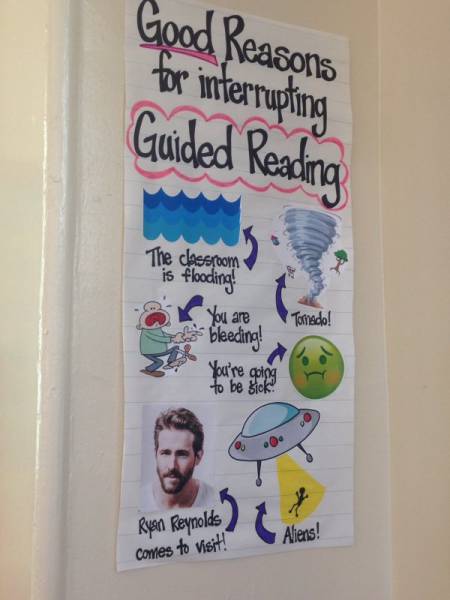 Good Reasons
for interrupting
Guided Reading
The classroom
is flooding!
Tornado!
You are
bleeding!
You're going
to be sick!
Ryan Reynolds
comes to visit!
Aliens!